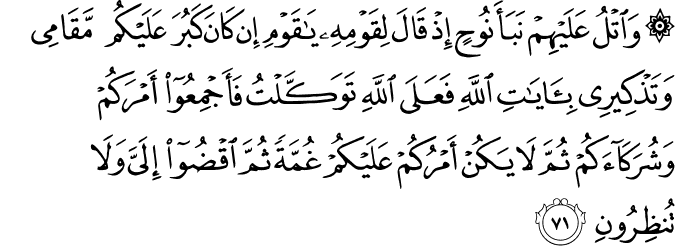 ۞ وَٱتْلُ عَلَيْهِمْ نَبَأَ نُوحٍ إِذْ قَالَ لِقَوْمِهِۦ يَـٰقَوْمِ إِن كَانَ كَبُرَ عَلَيْكُم مَّقَامِى
وَتَذْكِيرِى بِـَٔايَـٰتِ ٱللَّهِ فَعَلَى ٱللَّهِ تَوَكَّلْتُ فَأَجْمِعُوٓا۟ أَمْرَكُمْ
وَشُرَكَآءَكُمْ ثُمَّ لَا يَكُنْ أَمْرُكُمْ عَلَيْكُمْ غُمَّةً ثُمَّ ٱقْضُوٓا۟ إِلَىَّ وَلَا
تُنظِرُونِ ٧١